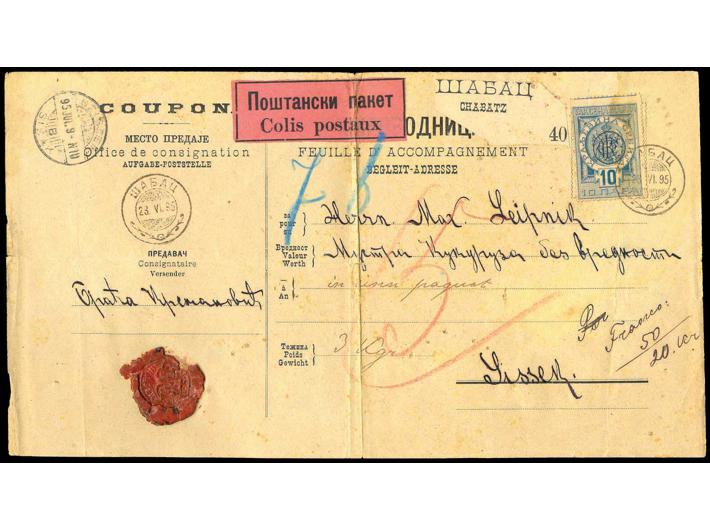 COUPON.
МЕСТО ПРЕДАЈЕ
Office de consignation
AUFGABE-POSTSTELLE
ШАБАЦ
23. VI. 95
ПРЕДАВАЧ
Consignataire
Versender
Браћа Крсмановић
Поштански пакет
Colis postaux
ШАБАЦ
CHABATZ
ОДНИЦ
40
FEUILLE D'ACCOMPAGNEMENT
BEGLEIT-ADRESSE
10
10 ПАРА
ШАБАЦ
VI. 95
за
pour
zu
Herrn Max Leipnik
Вредност
Valeur
Werth
Мустри Кукуруза без вредности
à
An
Тежина
Poids
Gewicht
3 Kgr
5
Franco:
50
20
Sissek